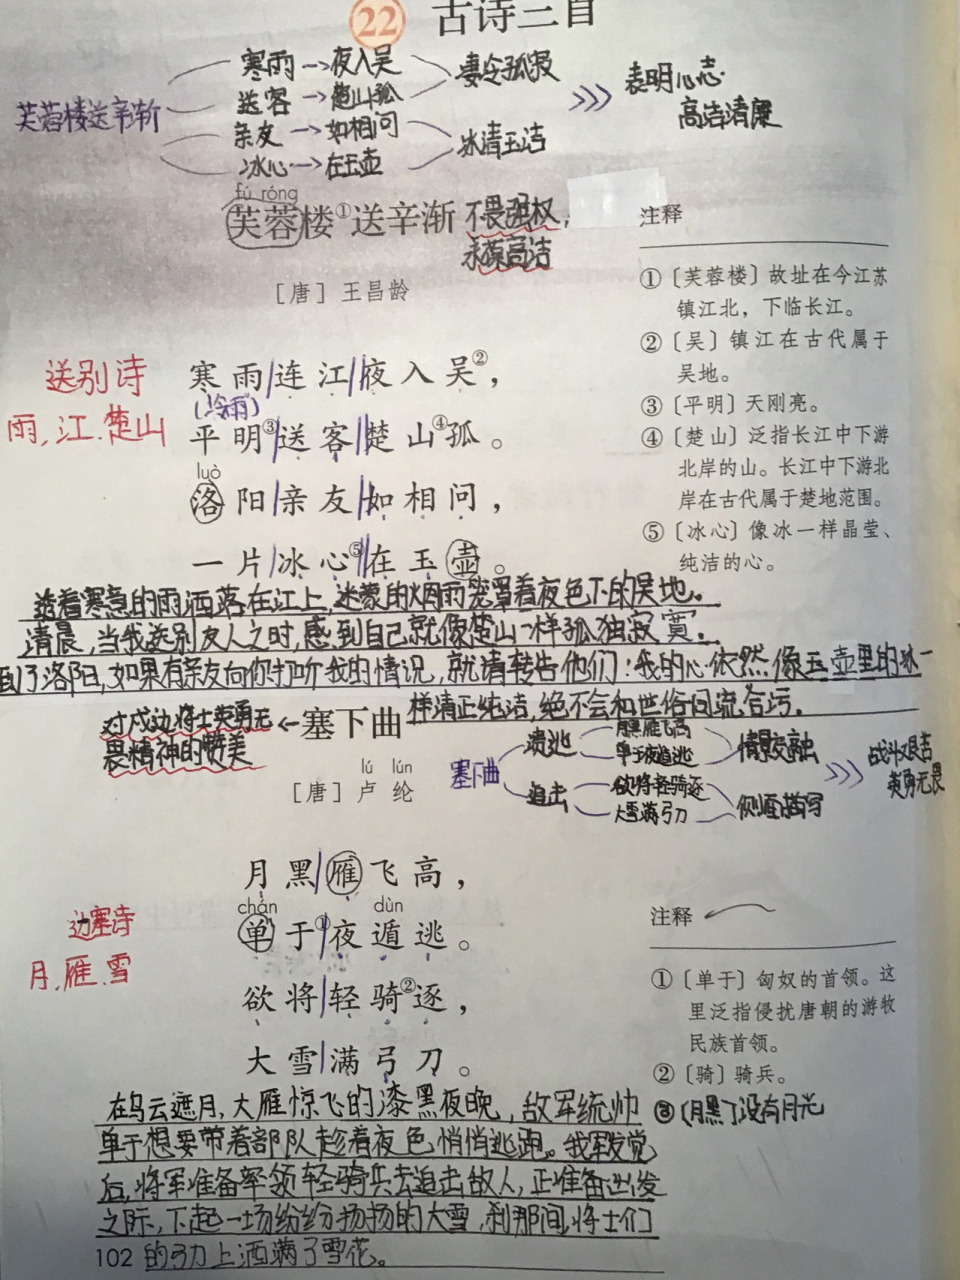 22 古诗三首
寒雨→夜入吴
凄冷孤寂
送客→楚山孤
芙蓉楼送辛渐
表明心志
高洁清廉
亲友→如相问
冰清玉洁
冰心→在玉壶
fú róng
芙蓉楼①送辛渐
不畏强权，
永葆高洁
［唐］王昌龄
送别诗
雨，江．楚山
寒雨连江夜入吴②，
(冷雨)
平明③送客楚山④孤。
luò
洛阳亲友如相问，
一片冰心⑤在玉壶。
注释
①〔芙蓉楼〕故址在今江苏
镇江北，下临长江。
②〔吴〕镇江在古代属于
吴地。
③〔平明〕天刚亮。
④〔楚山〕泛指长江中下游
北岸的山。长江中下游北
岸在古代属于楚地范围。
⑤〔冰心〕像冰一样晶莹、
纯洁的心。
透着寒意的雨洒落在江上，迷蒙的烟雨笼罩着夜色下的吴地。
清晨，当我送别友人之时，感到自己就像楚山一样孤独寂寞。
到了洛阳，如果有亲友向你打听我的情况，就请转告他们：我的心依然像玉壶里的冰一
样清正纯洁，绝不会和世俗同流合污。
对戍边将士英勇无
畏精神的赞美
←塞下曲
塞下曲
溃逃
月黑雁飞高
单于夜遁逃
情景交融
追击
欲将轻骑逐
大雪满弓刀
侧面描写
战斗艰苦
英勇无畏
lú lún
［唐］卢纶
边塞诗
月．雁．雪
月黑雁飞高，
chán dùn
单于①夜遁逃。
欲将轻骑②逐，
大雪满弓刀。
注释
①〔单于〕匈奴的首领。这
里泛指侵扰唐朝的游牧
民族首领。
②〔骑〕骑兵。
③〔月黑〕没有月光
在乌云遮月，大雁惊飞的漆黑夜晚，敌军统帅
单于想要带着部队趁着夜色悄悄逃跑。我军发觉
后，将军准备率领轻骑兵去追击敌人，正准备出发
之际，下起一场纷纷扬扬的大雪，刹那间，将士们
102 的弓刀上洒满了雪花。